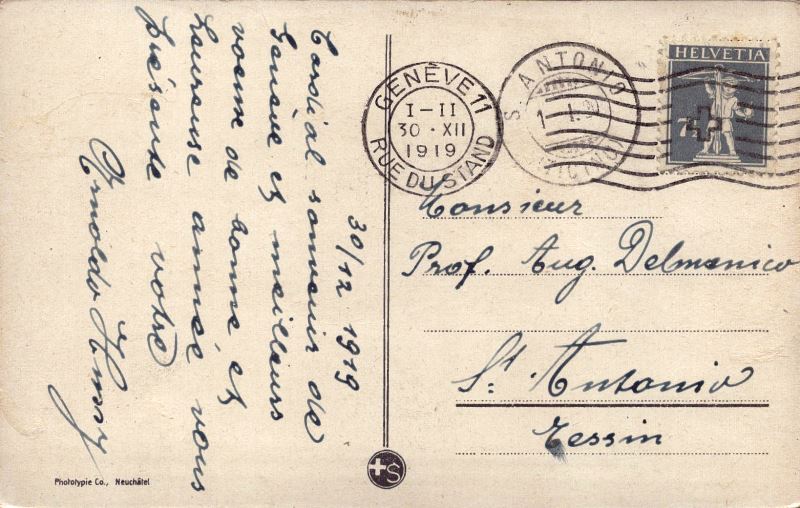 30/12 1919
Cordial souvenir de
Genève et meilleurs
voeux de bonne et
heureuse année vous
présente votre
Arnoldo
Phototypie Co., Neuchâtel
+S
GENÈVE 11
I-II
30·XII
1919
RUE DU STAND
S. ANTONIO
1.I.
(TICINO)
HELVETIA
7
Monsieur
Prof. Aug. Delmenico
St. Antonio
Tessin